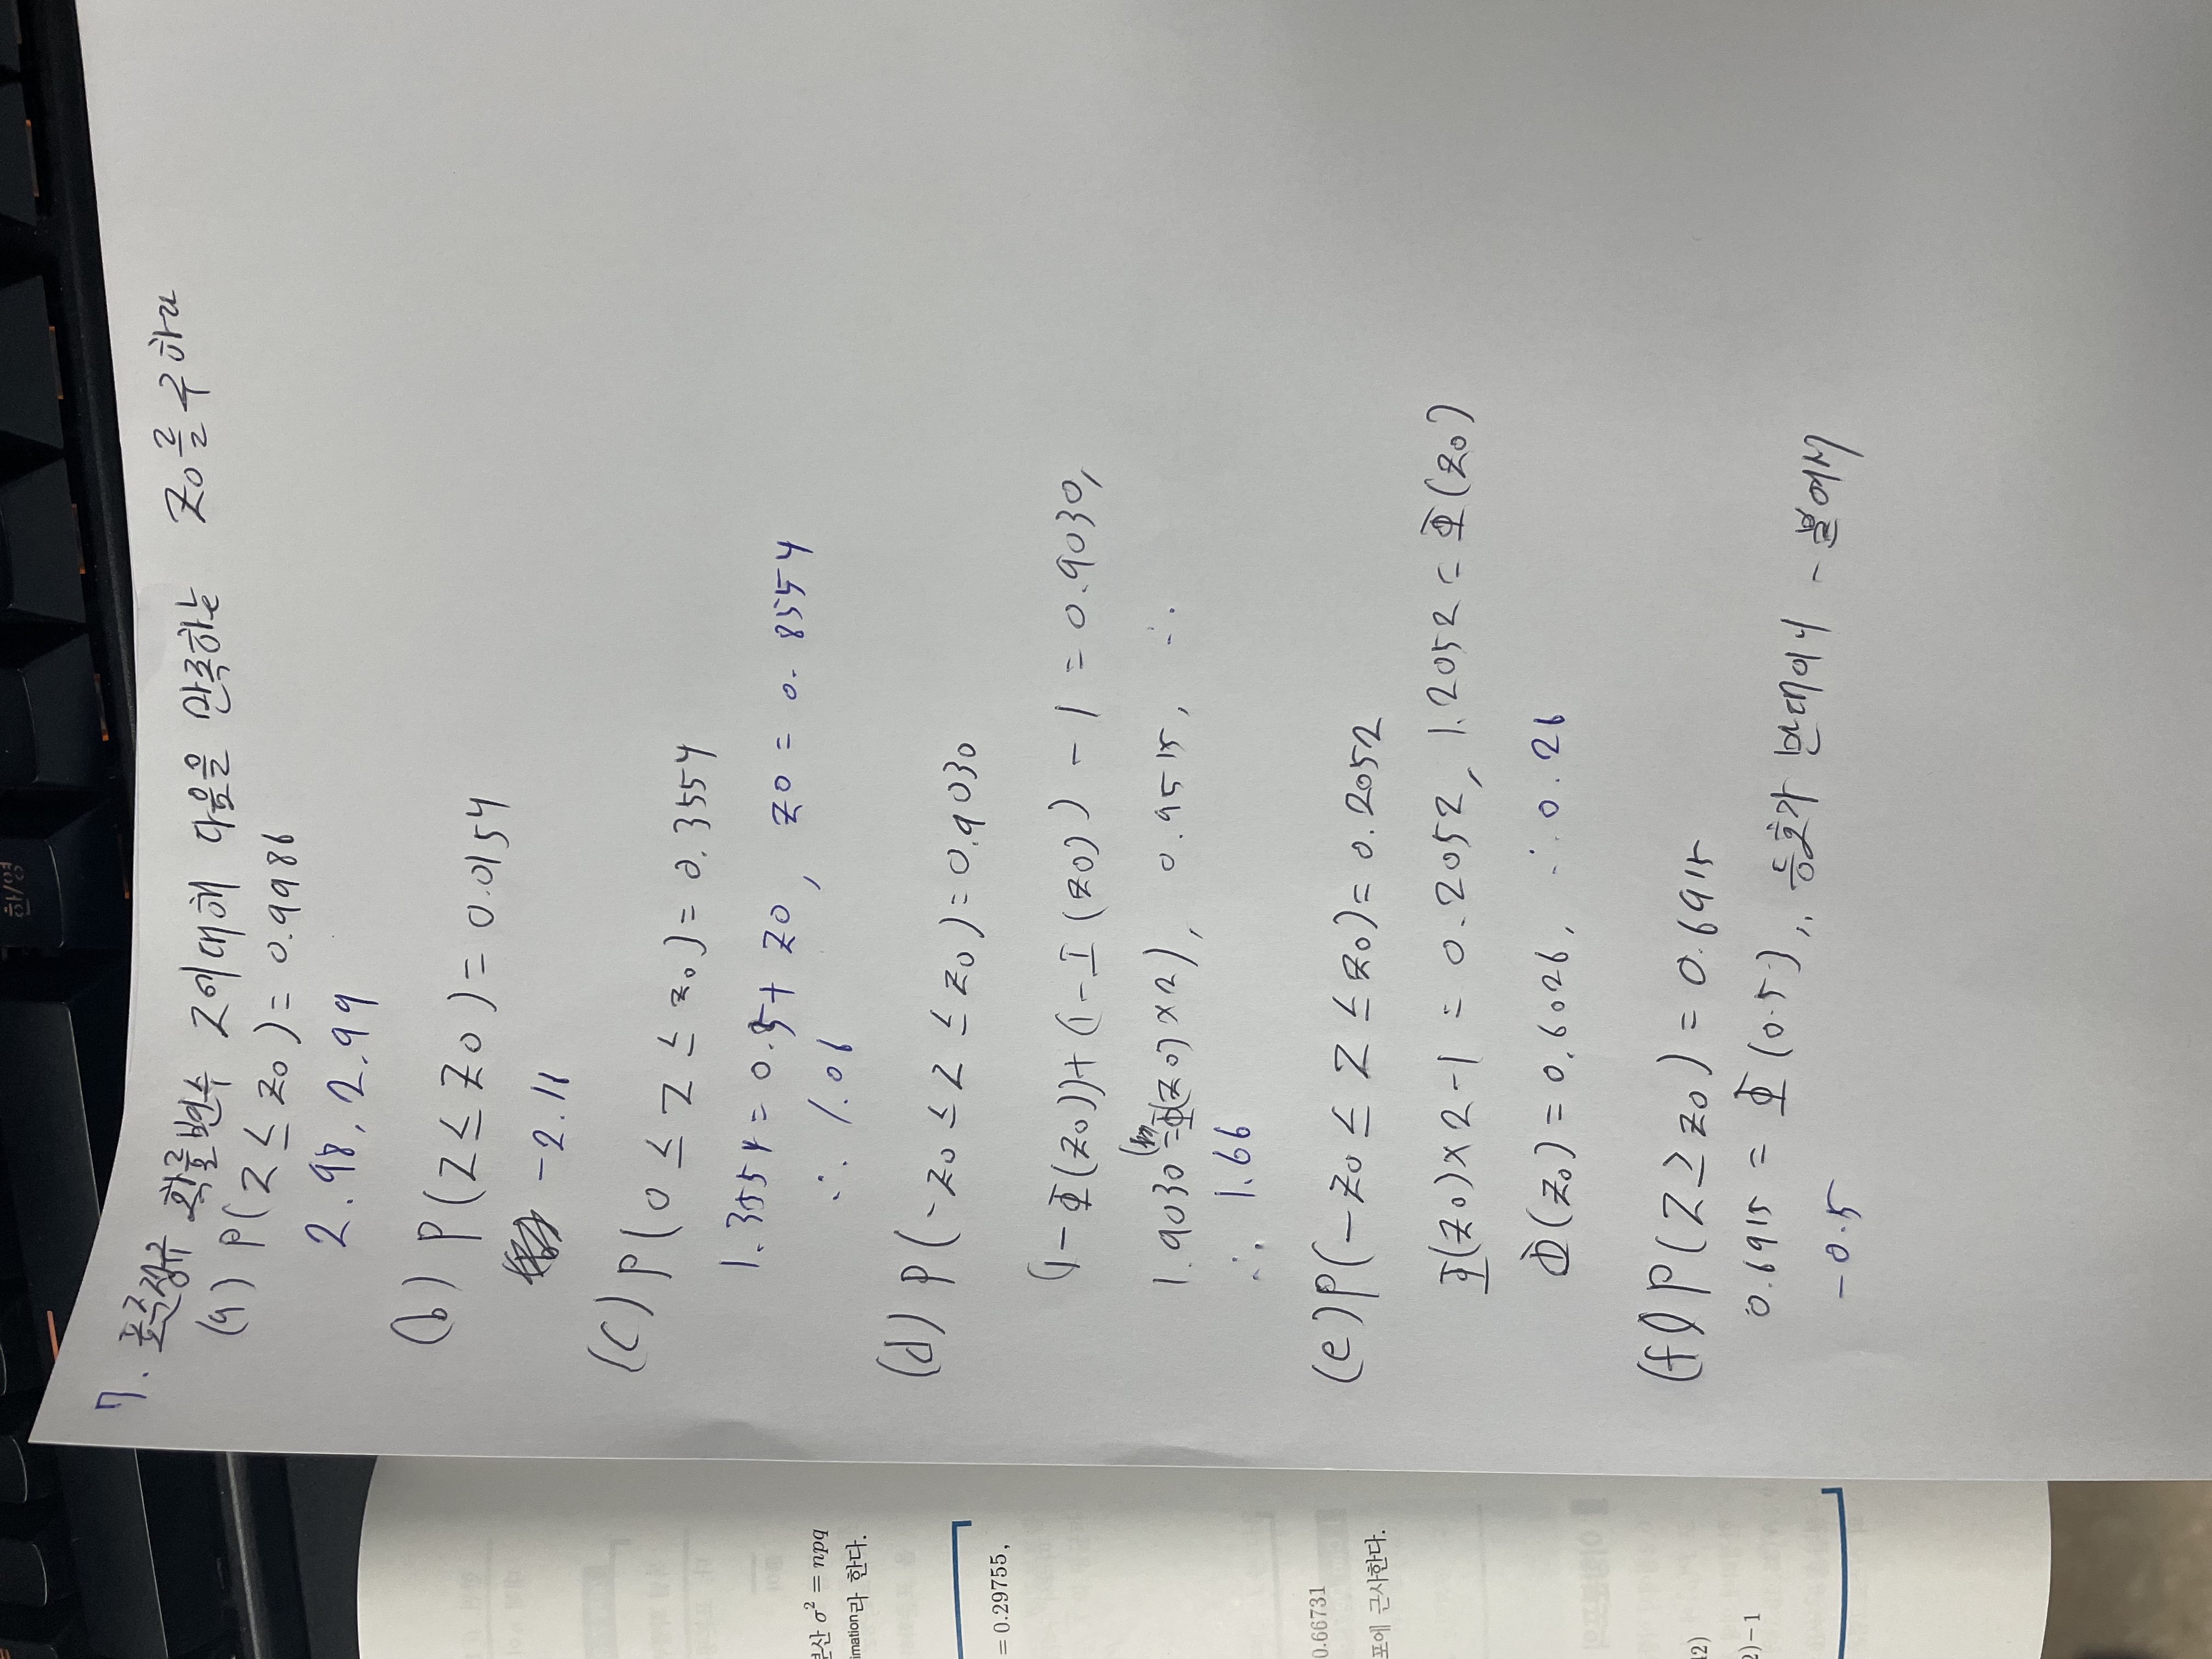 7. 표준정규 확률변수 Z에 대해 다음을 만족하는 z0를 구하라
(a) P(Z ≤ z0) = 0.9986
2.98, 2.99
(b) P(Z ≤ z0) = 0.0154
-2.11
(c) P(0 ≤ Z ≤ z0) = 0.3554
1.3554 = 0.5 + z0, z0 = 0.8554
∴ 1.06
(d) P(-z0 ≤ Z ≤ z0) = 0.9030
(1-Φ(z0)) + (1-Φ(z0)) - 1 = 0.9030,
1.9030 = Φ(z0) × 2), 0.9515, ∴
∴ 1.66
(e) P(-z0 ≤ Z ≤ z0) = 0.2052
Φ(z0) × 2 - 1 = 0.2052, 1.2052 = Φ(z0)
Φ(z0) = 0.6026, ∴ 0.26
(f) P(Z ≥ z0) = 0.6915
0.6915 = Φ(0.5), 등호가 반대이니 - 붙여서
-0.5
한/영
분산 σ² = npq
imation라 한다.
= 0.29755,
0.66731
포에 근사한다.
12)
2)-1